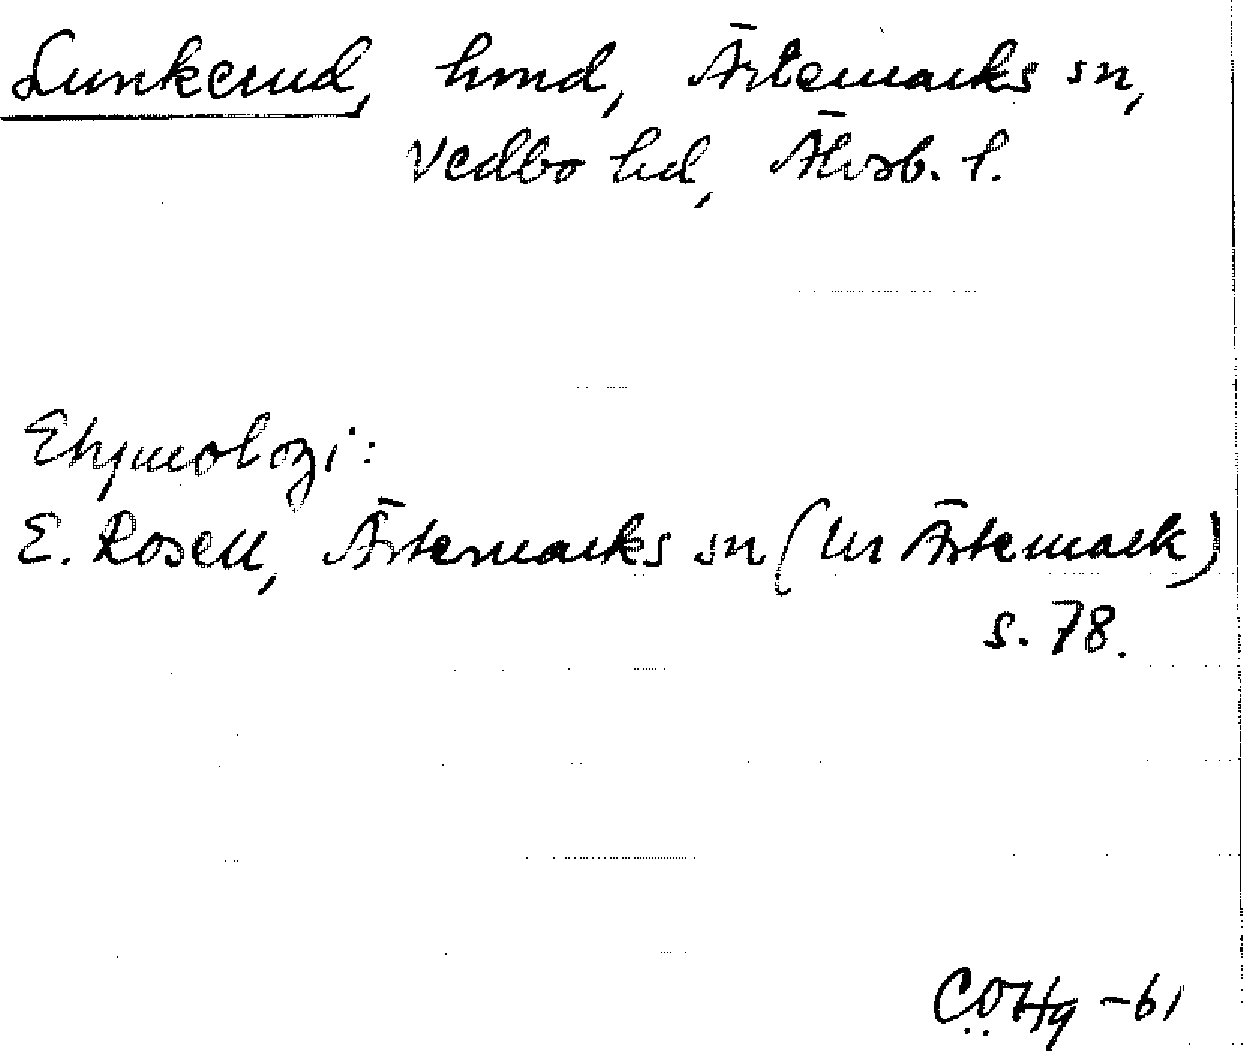 Lunkerud, hmd, Ärtemarks sn,
Vedbo hd, Älvsb. l.
Etymologi:
E. Rosell, Ärtemarks sn (ur Ärtemark)
s. 78.
COHg -61